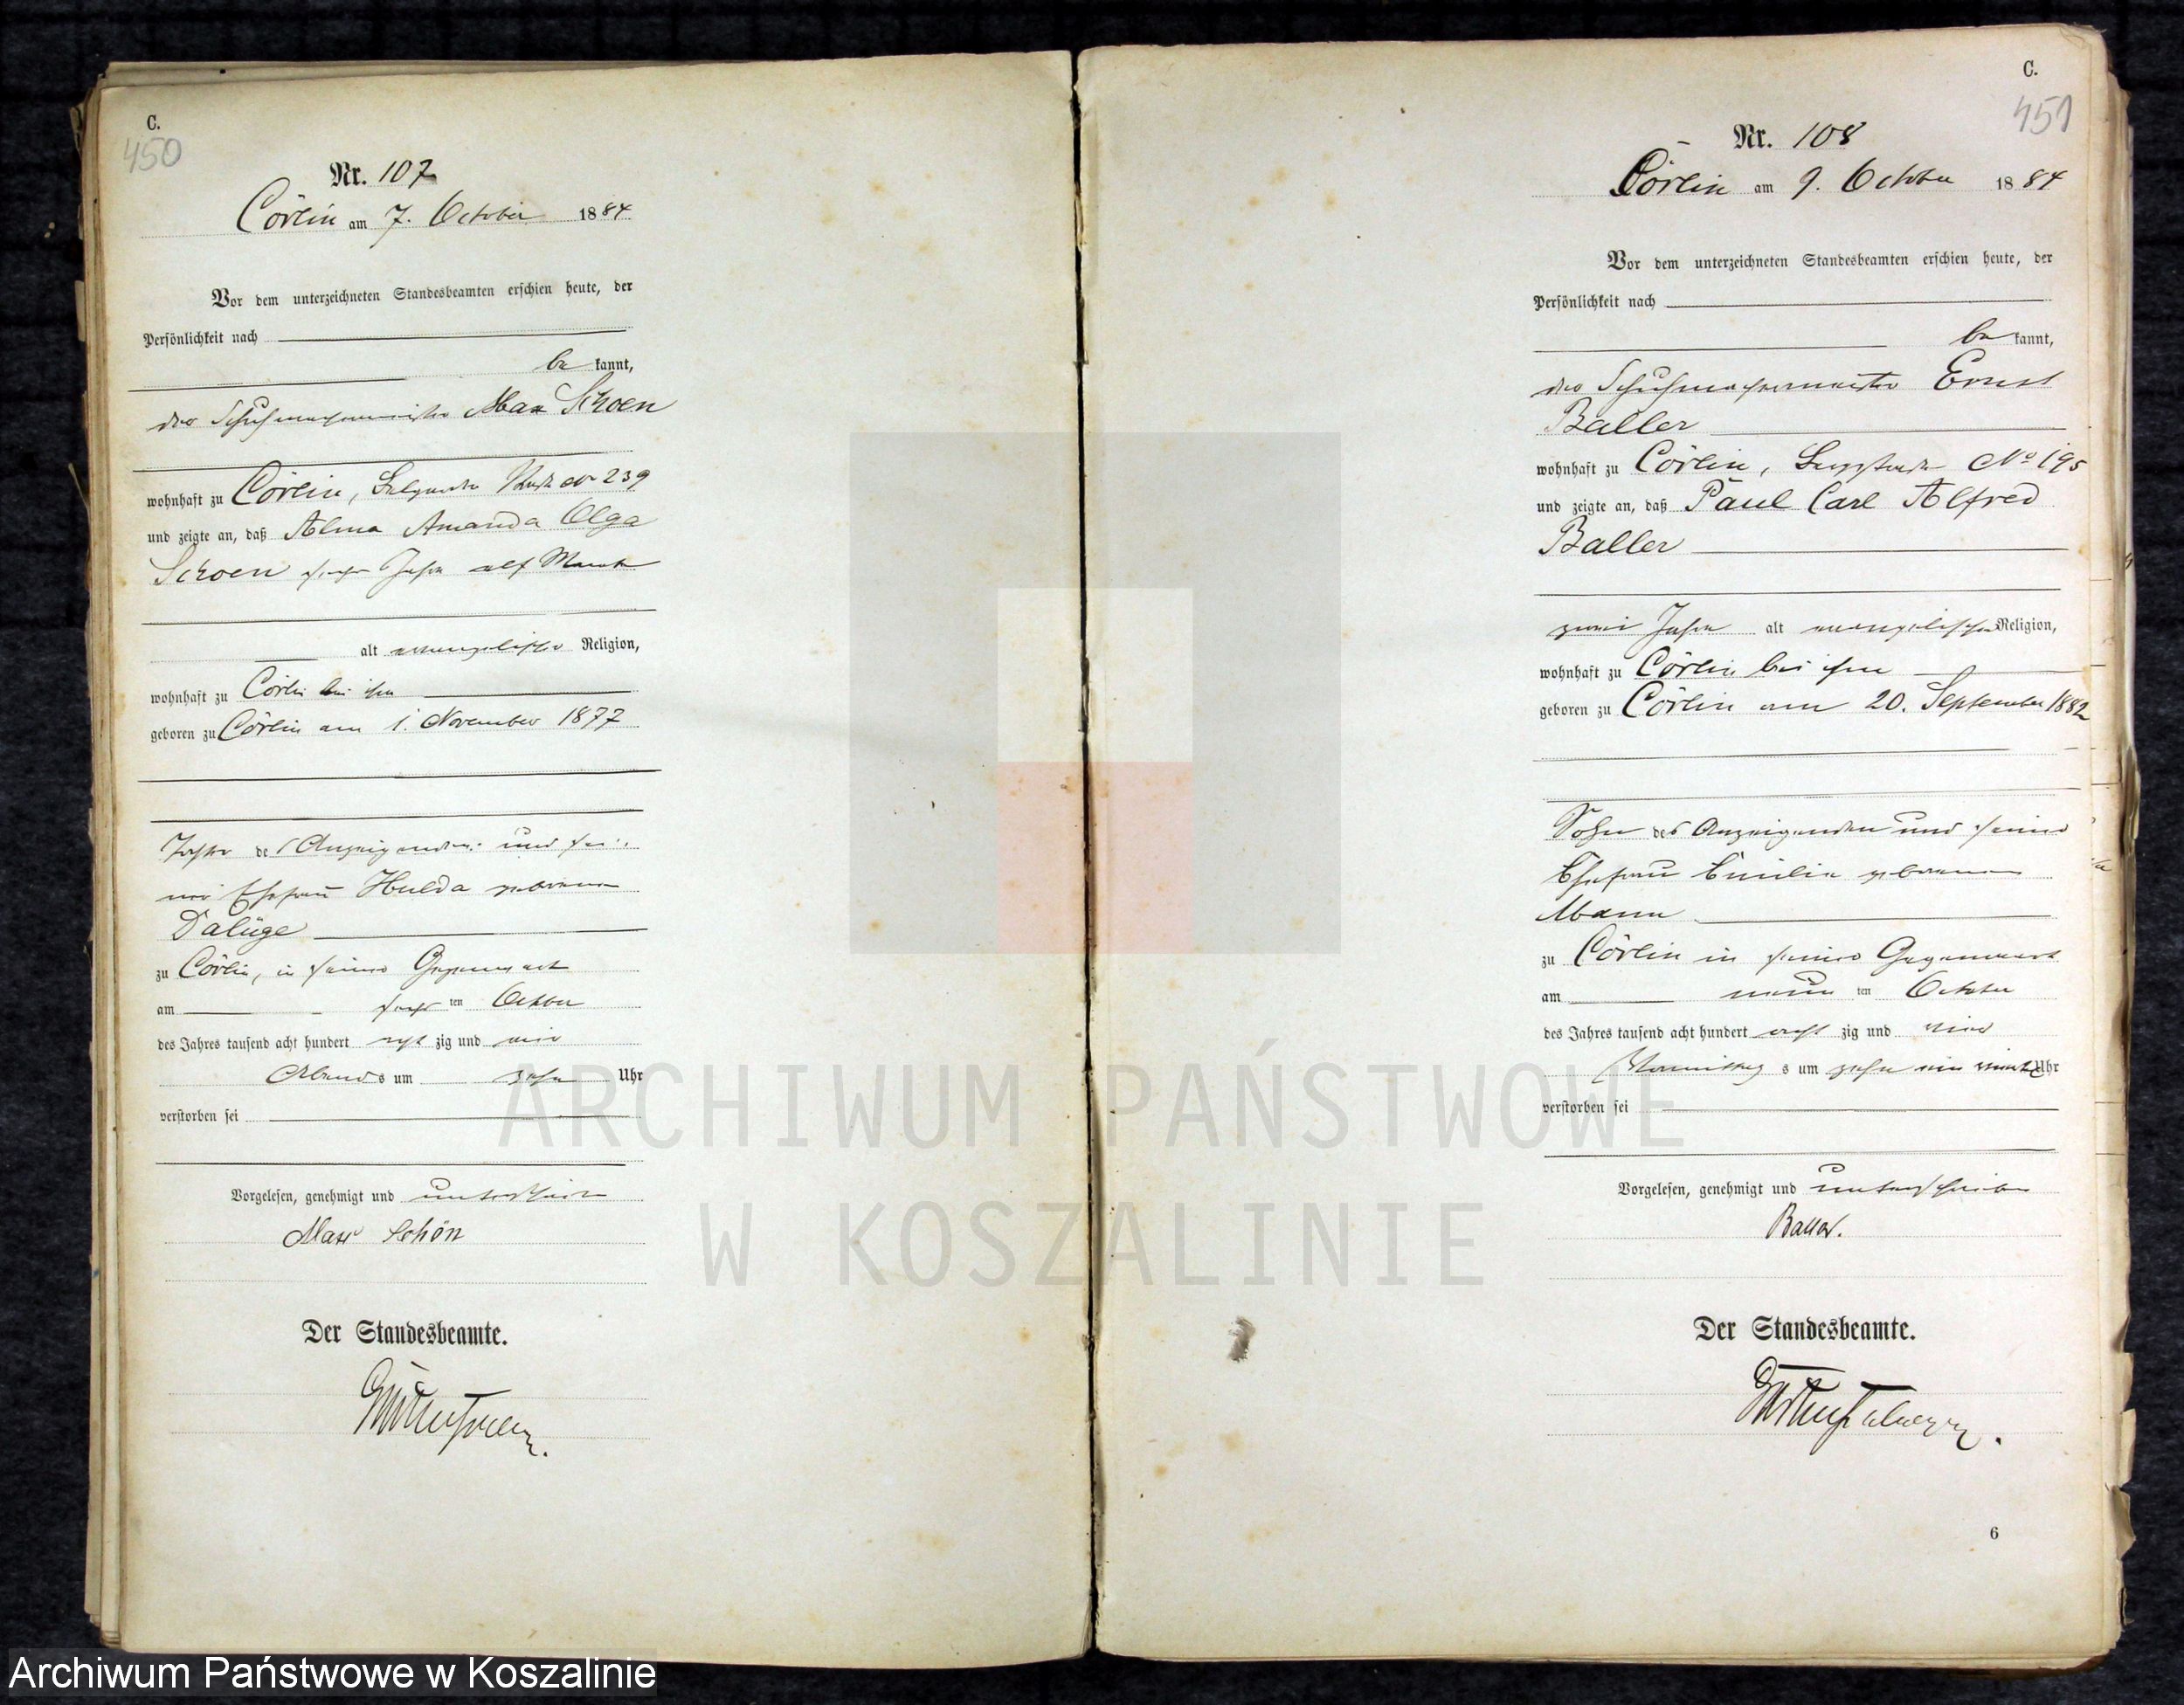 C.
450
Nr. 107
Cörlin am 7. October 1884
Vor dem unterzeichneten Standesbeamten erschien heute, der
Persönlichkeit nach
be kannt,
der Schuhmachermeister Max Schoen
wohnhaft zu Cörlin, No 239
und zeigte an, daß Alma Amanda Olga
Schoen sechs Jahre elf Monate
alt evangelischer Religion,
wohnhaft zu Cörlin bei ihm
geboren zu Cörlin am 1. November 1877
Tochter des Anzeigenden und sei-
ner Ehefrau Hulda geborene
Dalüge
zu Cörlin, in seiner Gegenwart
am sechs ten October
des Jahres tausend acht hundert acht zig und vier
Abends um zehn Uhr
verstorben sei
Vorgelesen, genehmigt und unterschrieben
Max Schön
Der Standesbeamte.
C.
451
Nr. 108
Cörlin am 9. October 1884
Vor dem unterzeichneten Standesbeamten erschien heute, der
Persönlichkeit nach
be kannt,
der Schuhmachermeister Ernst
Baller
wohnhaft zu Cörlin, No 195
und zeigte an, daß Paul Carl Alfred
Baller
zwei Jahre alt evangelischer Religion,
wohnhaft zu Cörlin bei ihm
geboren zu Cörlin am 20. September 1882
Sohn des Anzeigenden und seiner
Ehefrau Emilie geborenen
Mann
zu Cörlin in seiner Gegenwart
am neun ten October
des Jahres tausend acht hundert acht zig und vier
Vormittags um zehn ein viertel Uhr
verstorben sei
Vorgelesen, genehmigt und unterschrieben
Baller.
Der Standesbeamte.
6
ARCHIWUM PAŃSTWOWE
W KOSZALINIE
Archiwum Państwowe w Koszalinie